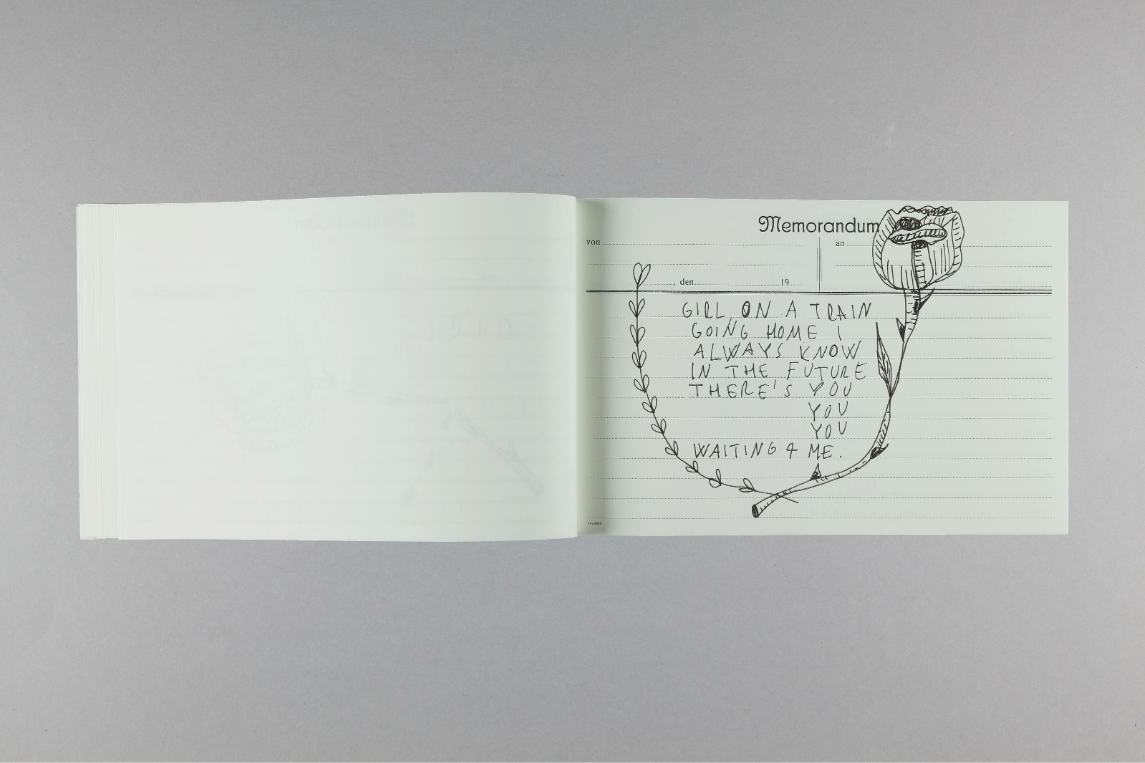 Memorandum
von an
, den 19
GIRL ON A TRAIN
GOING HOME I
ALWAYS KNOW
IN THE FUTURE
THERE'S YOU
YOU
YOU
WAITING 4 ME.